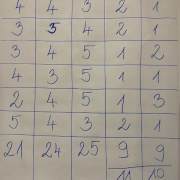 4 4 3 2 1
3 5 4 2 1
3 4 5 1 2
4 3 5 1 1
2 4 5 1 3
5 4 3 2 1
21 24 25 9 9
11 10